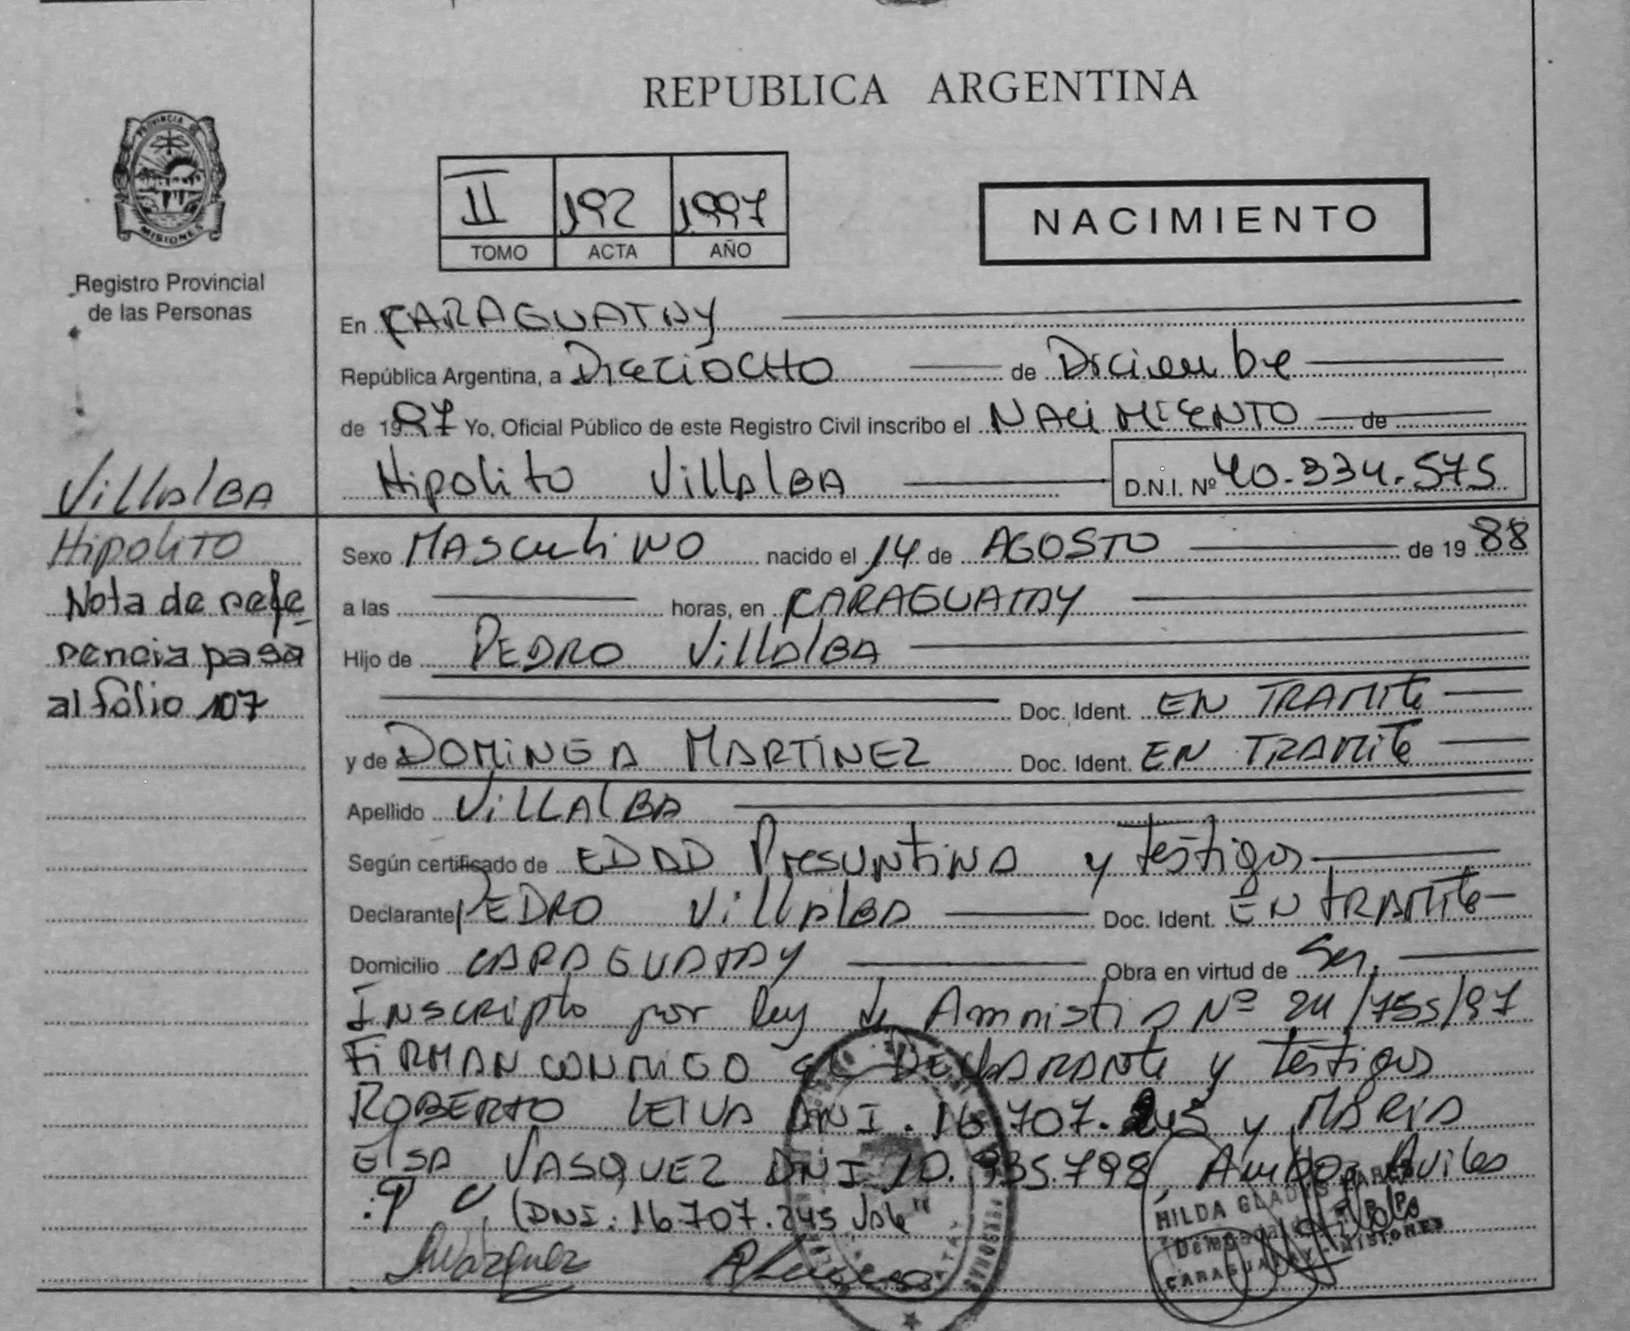 REPUBLICA ARGENTINA
PROVINCIA DE
MISIONES
II 192 1997
TOMO ACTA AÑO
NACIMIENTO
Registro Provincial
de las Personas
En CARAGUATAY
República Argentina, a DIECIOCHO de Diciembre
de 1997 Yo, Oficial Público de este Registro Civil inscribo el NACIMIENTO de
Hipolito VillALBA D.N.I. Nº 40.334.575
VillALBA
Hipolito
Nota de refe
rencia pasa
al folio 107
Sexo MASCuliNO nacido el 14 de AGOSTO de 1988
a las horas, en CARAGUATAY
Hijo de PEDRO VillALBA
Doc. Ident. EN TRAMITE
y de DOMINGA MARTINEZ Doc. Ident. EN TRAMITE
Apellido VILLALBA
Según certificado de EDAD PresuntivA y testigos
Declarante PEDRO VillALBA Doc. Ident. EN TRAMITE
Domicilio CARAGUATAY Obra en virtud de Ser.
INscripto por ley de Amnistia Nº 24/755/97
FIRMAN CONMIGO EL DEClARANTE y testigos
ROBERTO LEIVA DNI. 16.707.245 y MARIA
ElSA VASQUEZ DNI 10.935.798, Ambos Aviles
(DNI: 16.707.245 Vale"
HILDA GLADYS
Delegada
CARAGUATAY - MISIONES